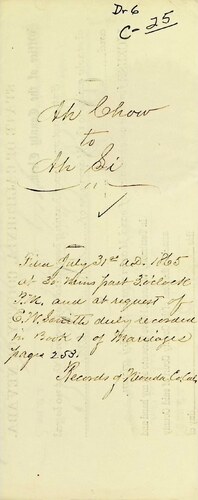 Dr 6
C-25
Ah Chow
to
Ah Si
Filed July 31st A.D. 1865
at 30 mins past 3 o'clock
P.M. and at request of
E. W. Smith duly recorded
in Book 1 of Marriages
pages 253.
Records of Nevada Co. Cal.